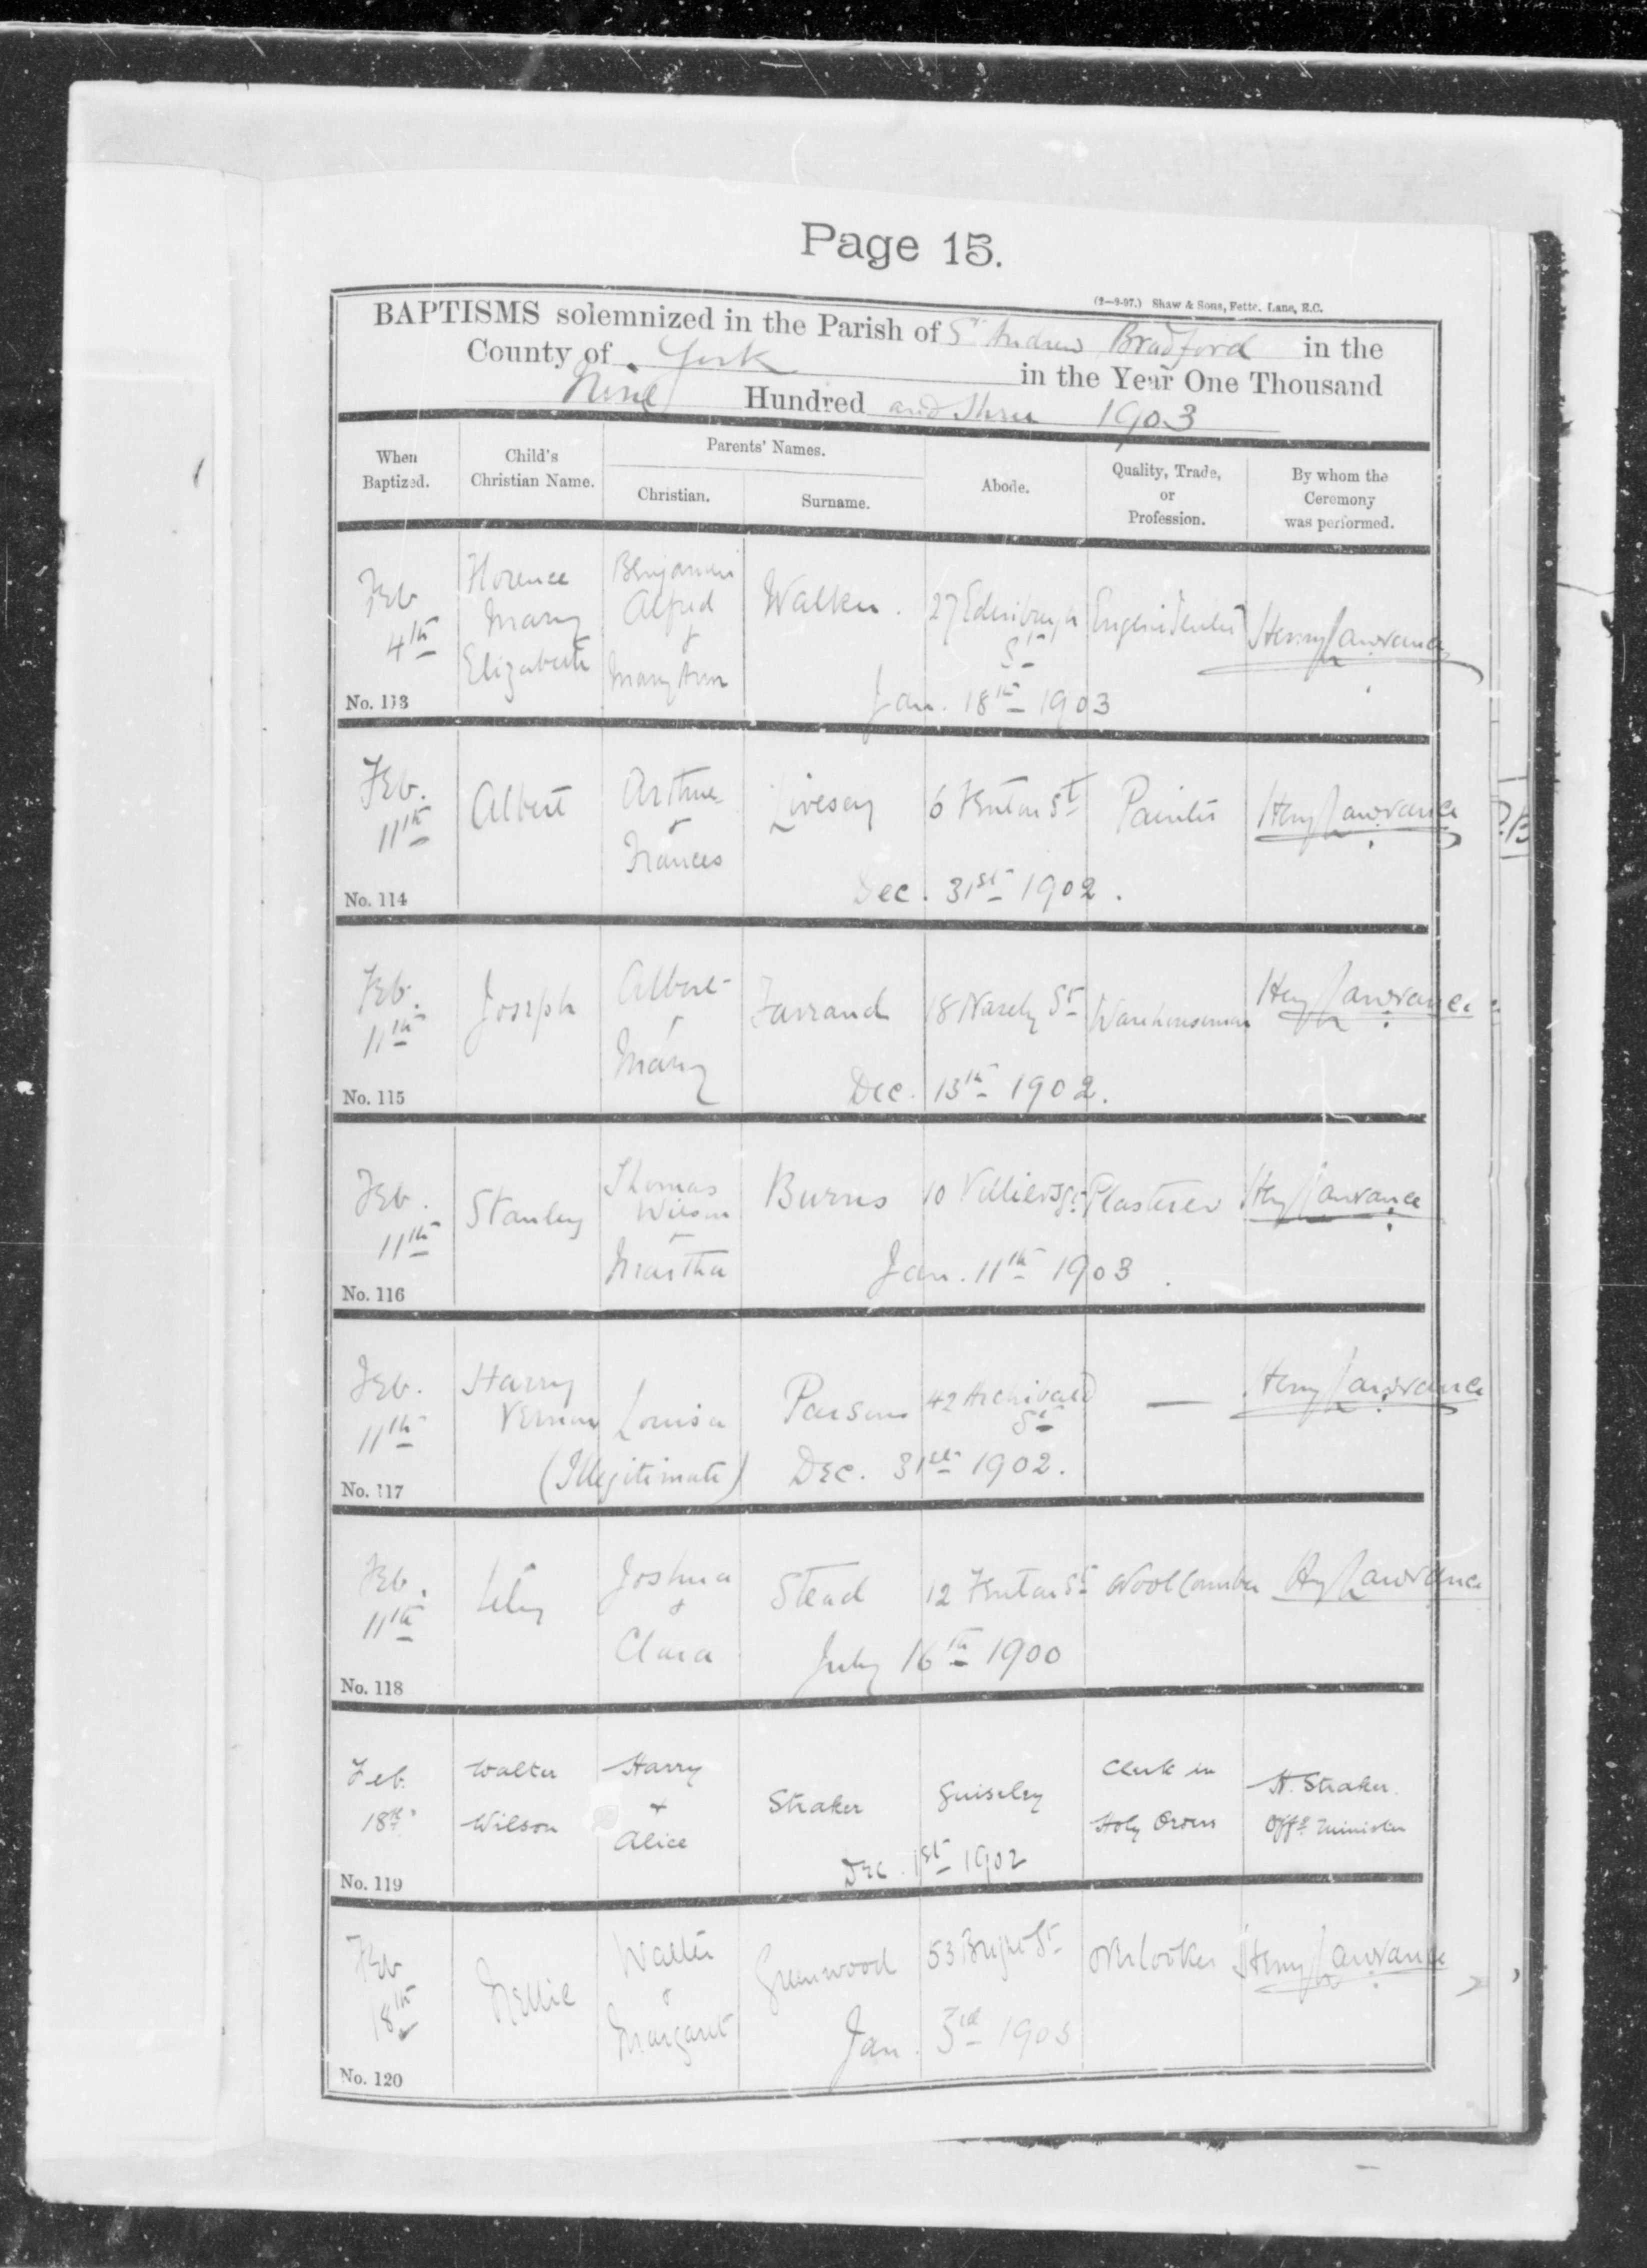 Page 15.
(2—9-97.) Shaw & Sons, Fetter Lane, E.C.
BAPTISMS solemnized in the Parish of St Andrew Bradford in the
County of York in the Year One Thousand
Nine Hundred and Three 1903
When Baptized.
Child's Christian Name.
Parents' Names.
Christian.
Surname.
Abode.
Quality, Trade, or Profession.
By whom the Ceremony was performed.
Feb 4th
Florence Mary Elizabeth
Benjamin Alfred & Mary Ann
Walker.
27 Edinburgh St
Engine Tenter
Henry Lawrance
Jan. 18th 1903
No. 113
Feb. 11th
Albert
Arthur & Frances
Livesey
6 Fenton St
Painter
Hen Lawrance
Dec. 31st 1902.
No. 114
Feb. 11th
Joseph
Albert & Mary
Farrand
18 Naseby St
Warehouseman
Hen Lawrance
Dec. 13th 1902.
No. 115
Feb. 11th
Stanley
Thomas Wilson & Martha
Burns
10 Villiers St
Plasterer
Hen Lawrance
Jan. 11th 1903.
No. 116
Feb. 11th
Harry Vernon
Louisa
Parsons
42 Archibald St
—
Henry Lawrance
(Illegitimate)
Dec. 31st 1902.
No. 117
Feb. 11th
Lily
Joshua & Clara
Stead
12 Fenton St
Woolcomber
Hy Lawrance
July 16th 1900
No. 118
Feb. 18th
Walter Wilson
Harry + Alice
Straker
Guiseley
Clerk in Holy Orders
H. Straker. Offg Minister
Dec. 1st 1902
No. 119
Feb 18th
Nellie
Walter & Margaret
Greenwood
53 Bright St
Overlooker
Henry Lawrance
Jan. 3rd 1903
No. 120